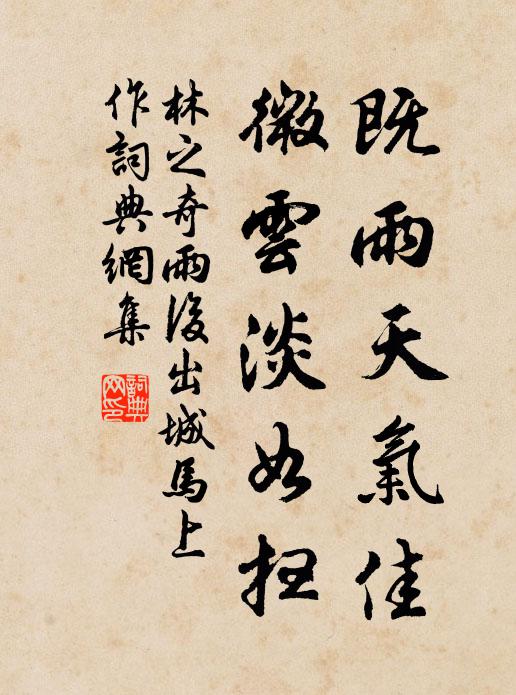 既雨天氣佳
微雲淡如扫
林之奇雨後出城馬上
作詞典網集
詞典
网印